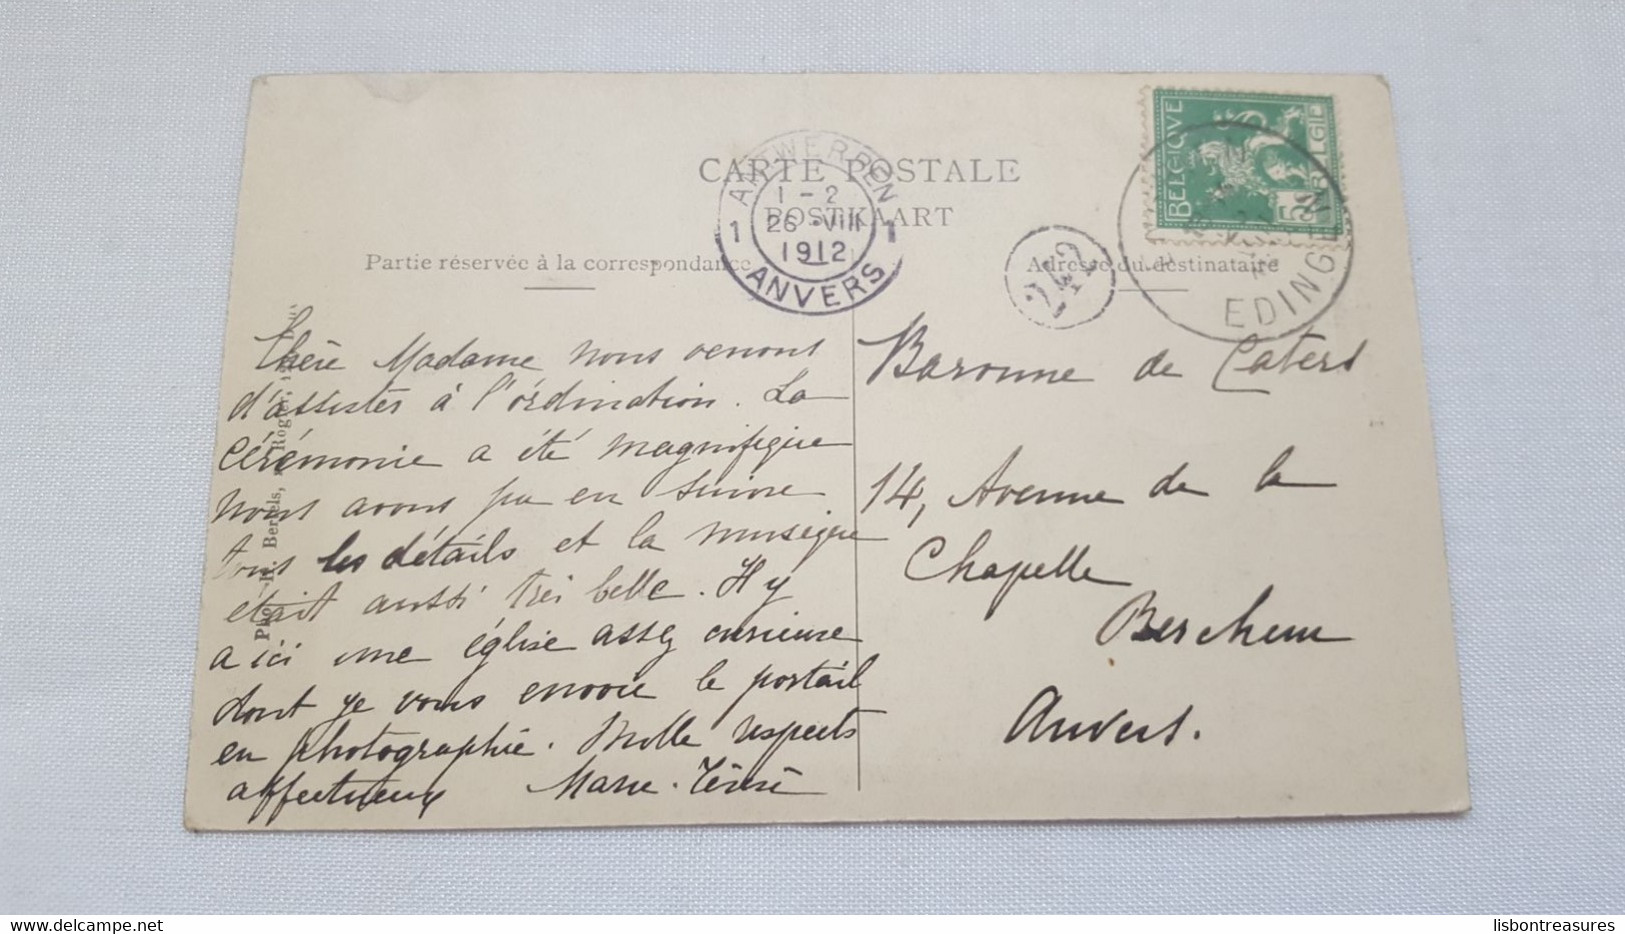 CARTE POSTALE
POSTKAART
Partie réservée à la correspondance
Adresse du destinataire
ANTWERPEN
1 1-2 1
26 VIII
1912
ANVERS
242
BELGIQUE
BELGIË
5
EDINGEN
Chère Madame nous venons
d'assister à l'ordination. La
Cérémonie a été magnifique
nous avons pu en suivre
tous les détails et la musique
etait aussi très belle. Il y
a ici une église assez curieuse
dont je vous envoie le portail
en photographie. Mille respects
affectueux Marie-Térèse
Baronne de Caters
14, Avenue de la
Chapelle
Berchem
Anvers.
Bertels,
delcampe.net
lisbontreasures